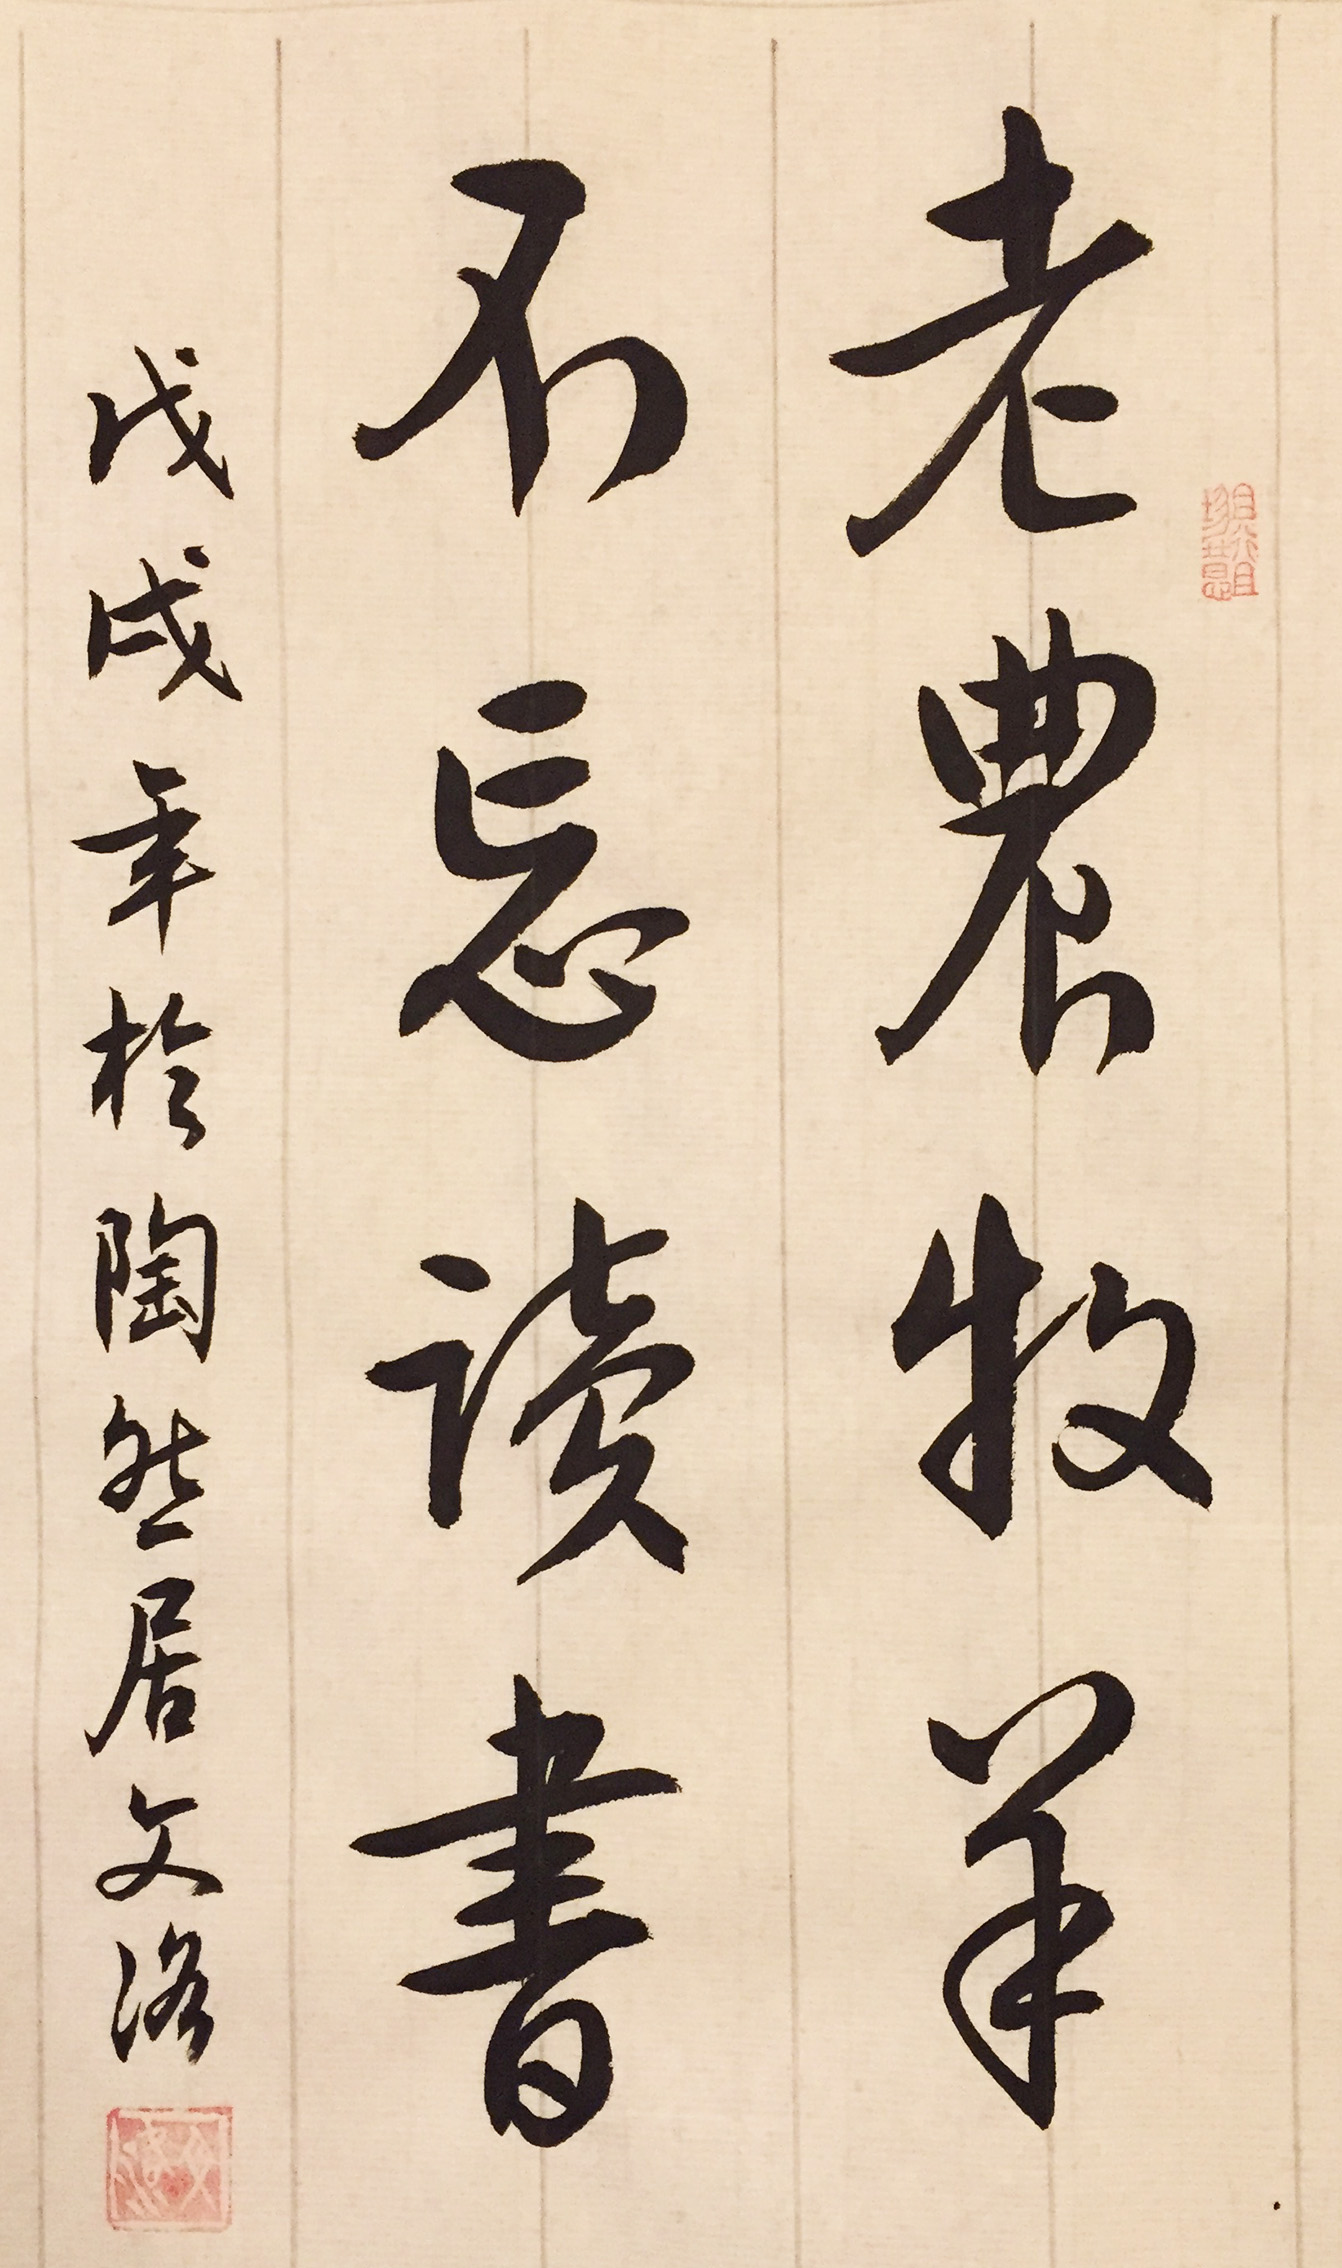 老農牧羊
不忘读書
戊戌年於陶然居文洛